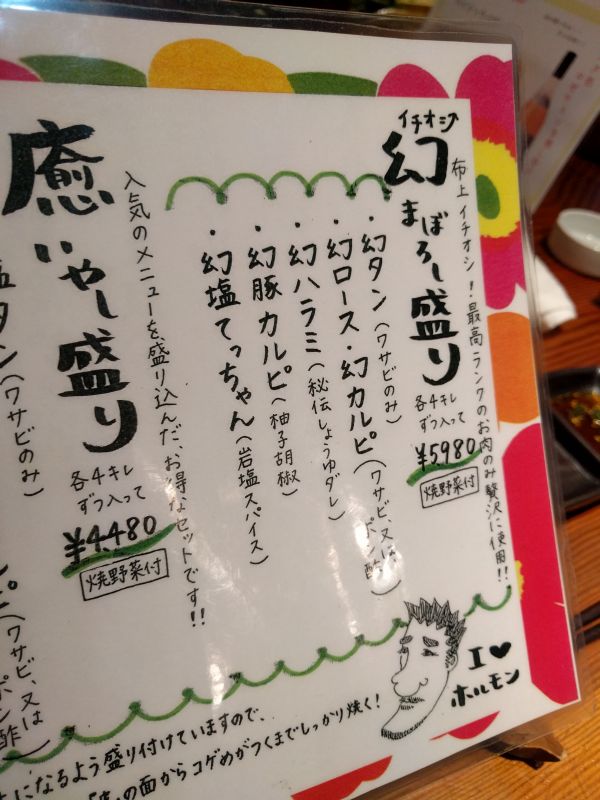 イチオシ
幻
まぼろし盛り
各4キレ
ずつ入って
¥5980
焼野菜付
布上イチオシ!最高ランクのお肉のみ贅沢に使用!!
・幻タン(ワサビのみ)
・幻ロース・幻カルビ(ワサビ、又はポン酢)
・幻ハラミ(秘伝しょうゆダレ)
・幻豚カルビ(柚子胡椒)
・幻塩てっちゃん(岩塩スパイス)
癒
いやし盛り
各4キレ
ずつ入って
¥4,480
焼野菜付
人気のメニューを盛り込んだ、お得なセットです!!
塩タン(ワサビのみ)
(ワサビ、又は
ポン酢
I♥
ホルモン
になるよう盛り付けていますので、
の面からコゲめがつくまでしっかり焼く!